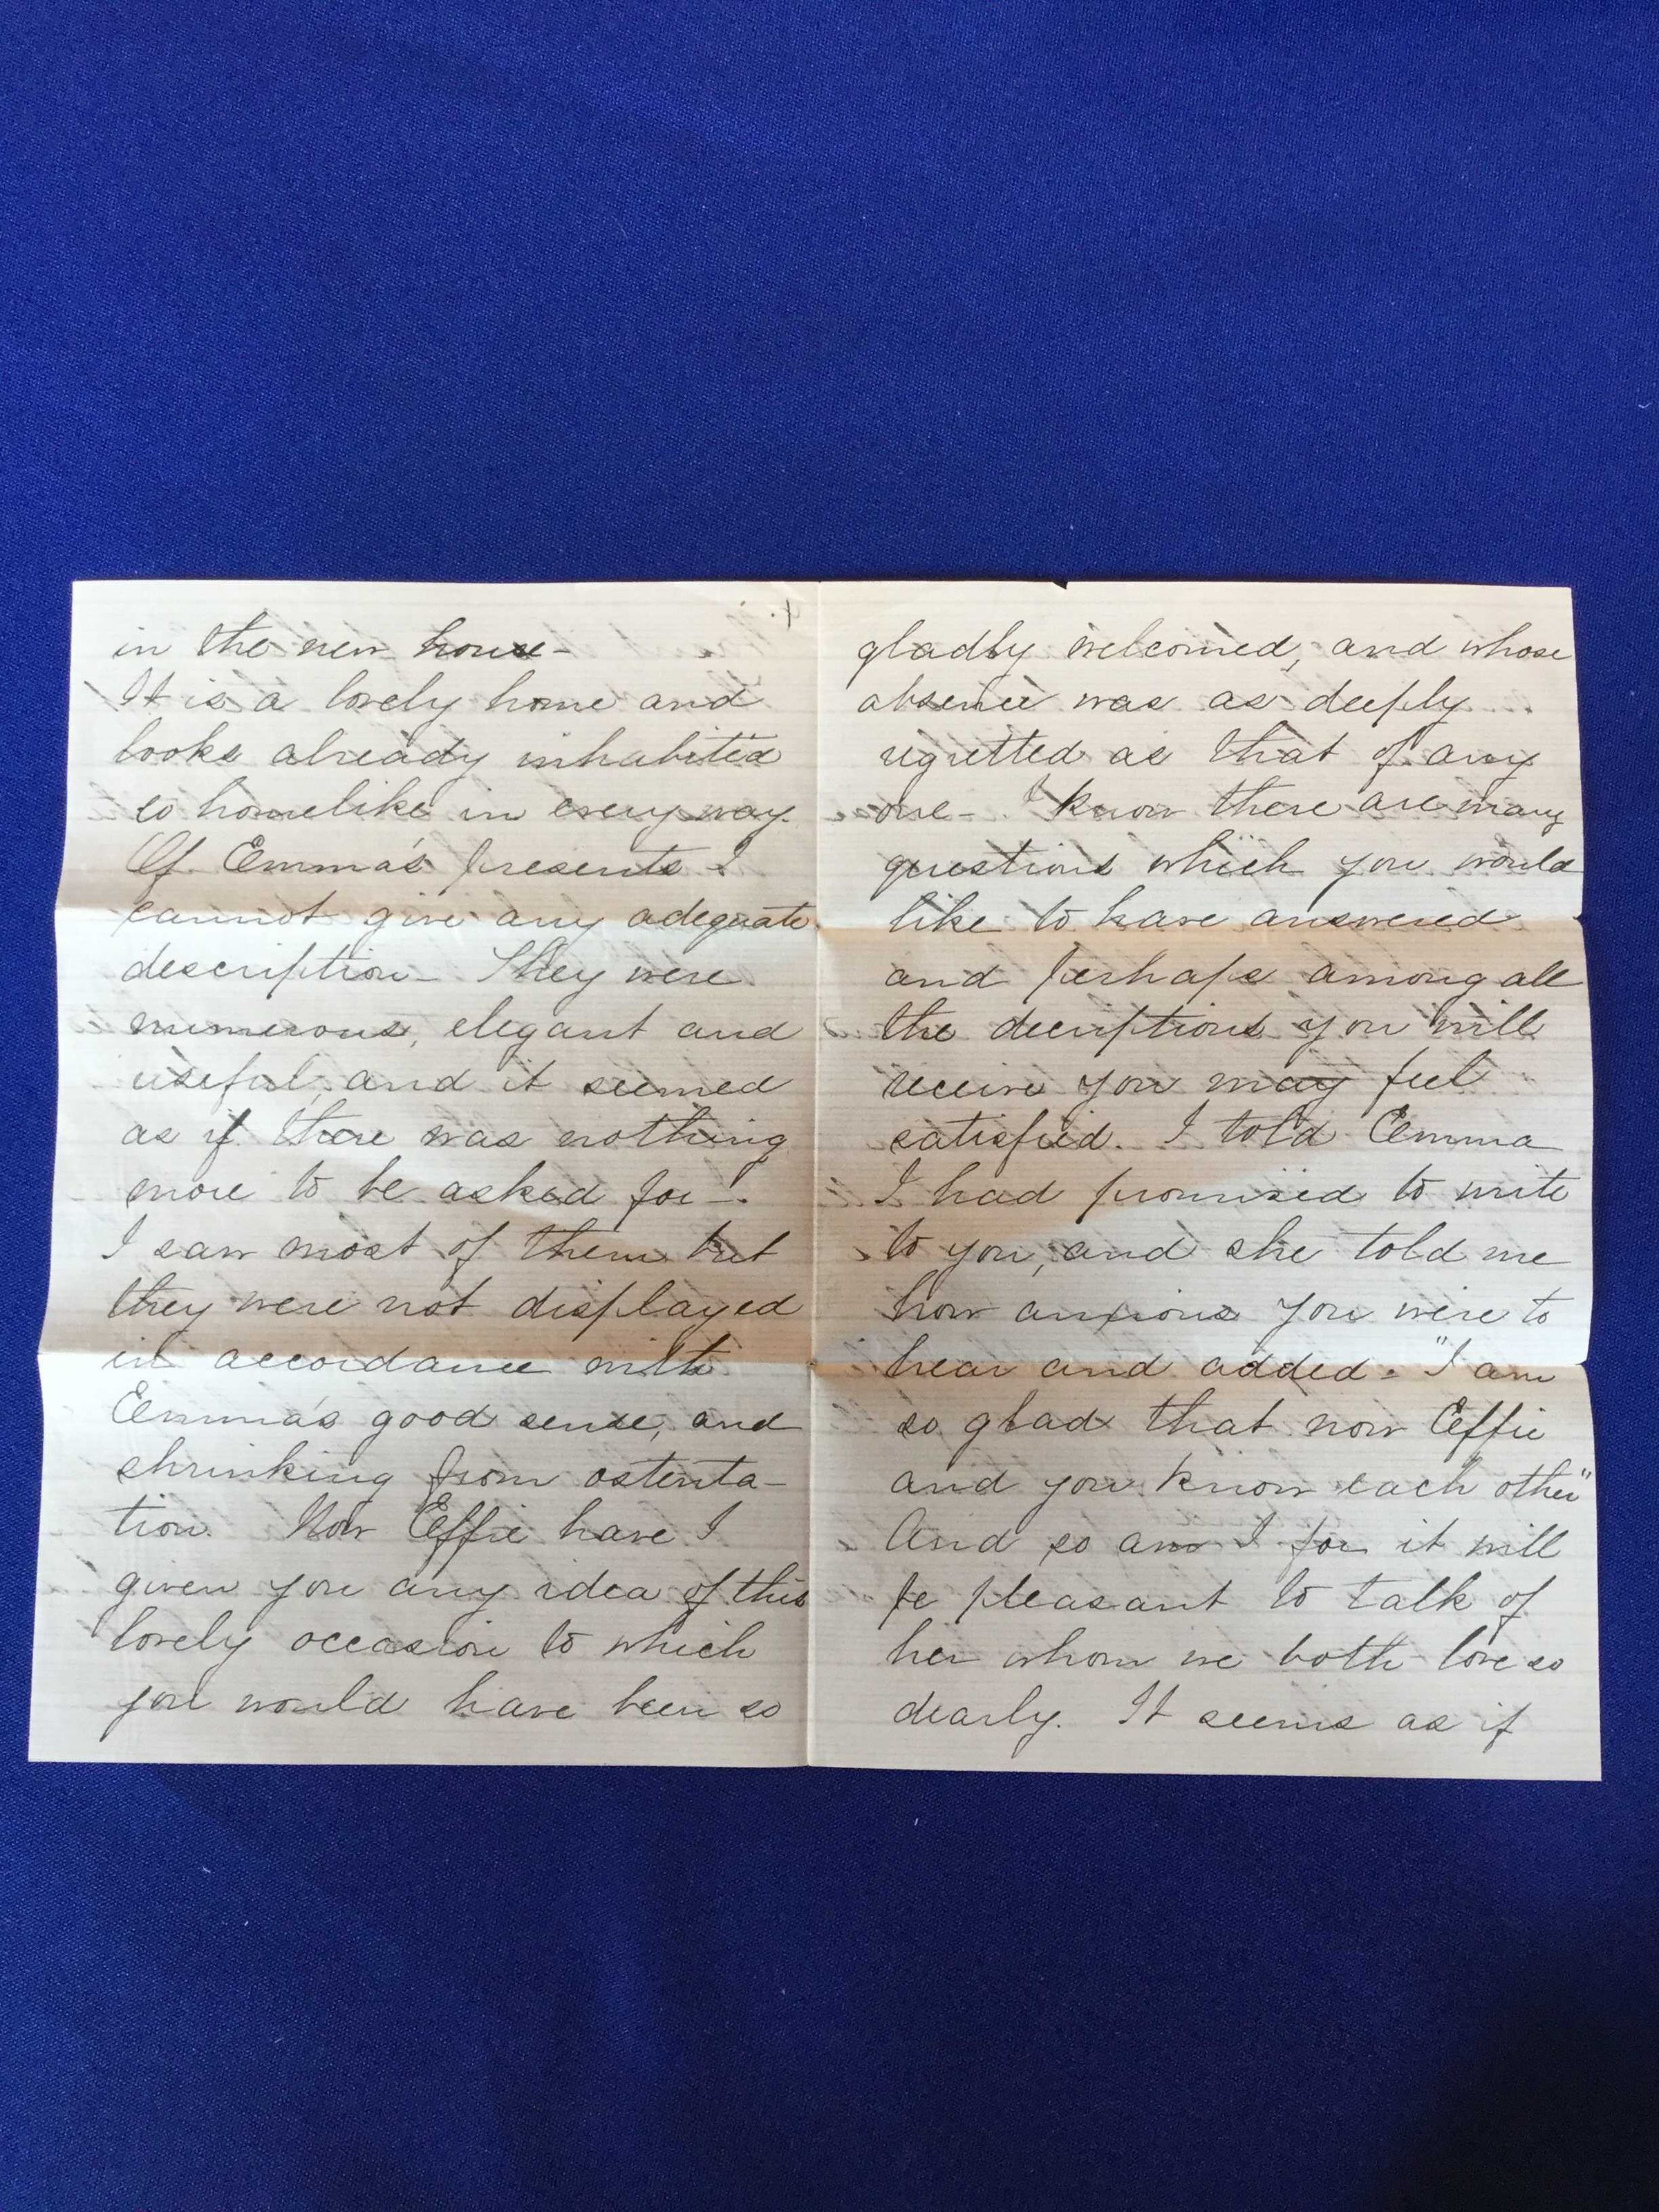 in the new house-
It is a lovely home and
looks already inhabited
so homelike in every way.
Of Emma's presents I
cannot give any adequate
description- They were
numerous, elegant and
useful, and it seemed
as if there was nothing
more to be asked for-.
I saw most of them but
they were not displayed
in accordance with
Emma's good sense, and
shrinking from ostenta-
tion. Now Effie have I
given you any idea of this
lovely occasion to which
you would have been so
gladly welcomed, and whose
absence was as deeply
regretted as that of any
one- I know there are many
questions which you would
like to have answered
and perhaps among all
the decriptions you will
receive you may feel
satisfied. I told Emma
I had promised to write
to you, and she told me
how anxious you were to
hear and added- "I am
so glad that now Effie
and you know each other"
And so am I for it will
be pleasant to talk of
her whom we both love so
dearly. It seems as if